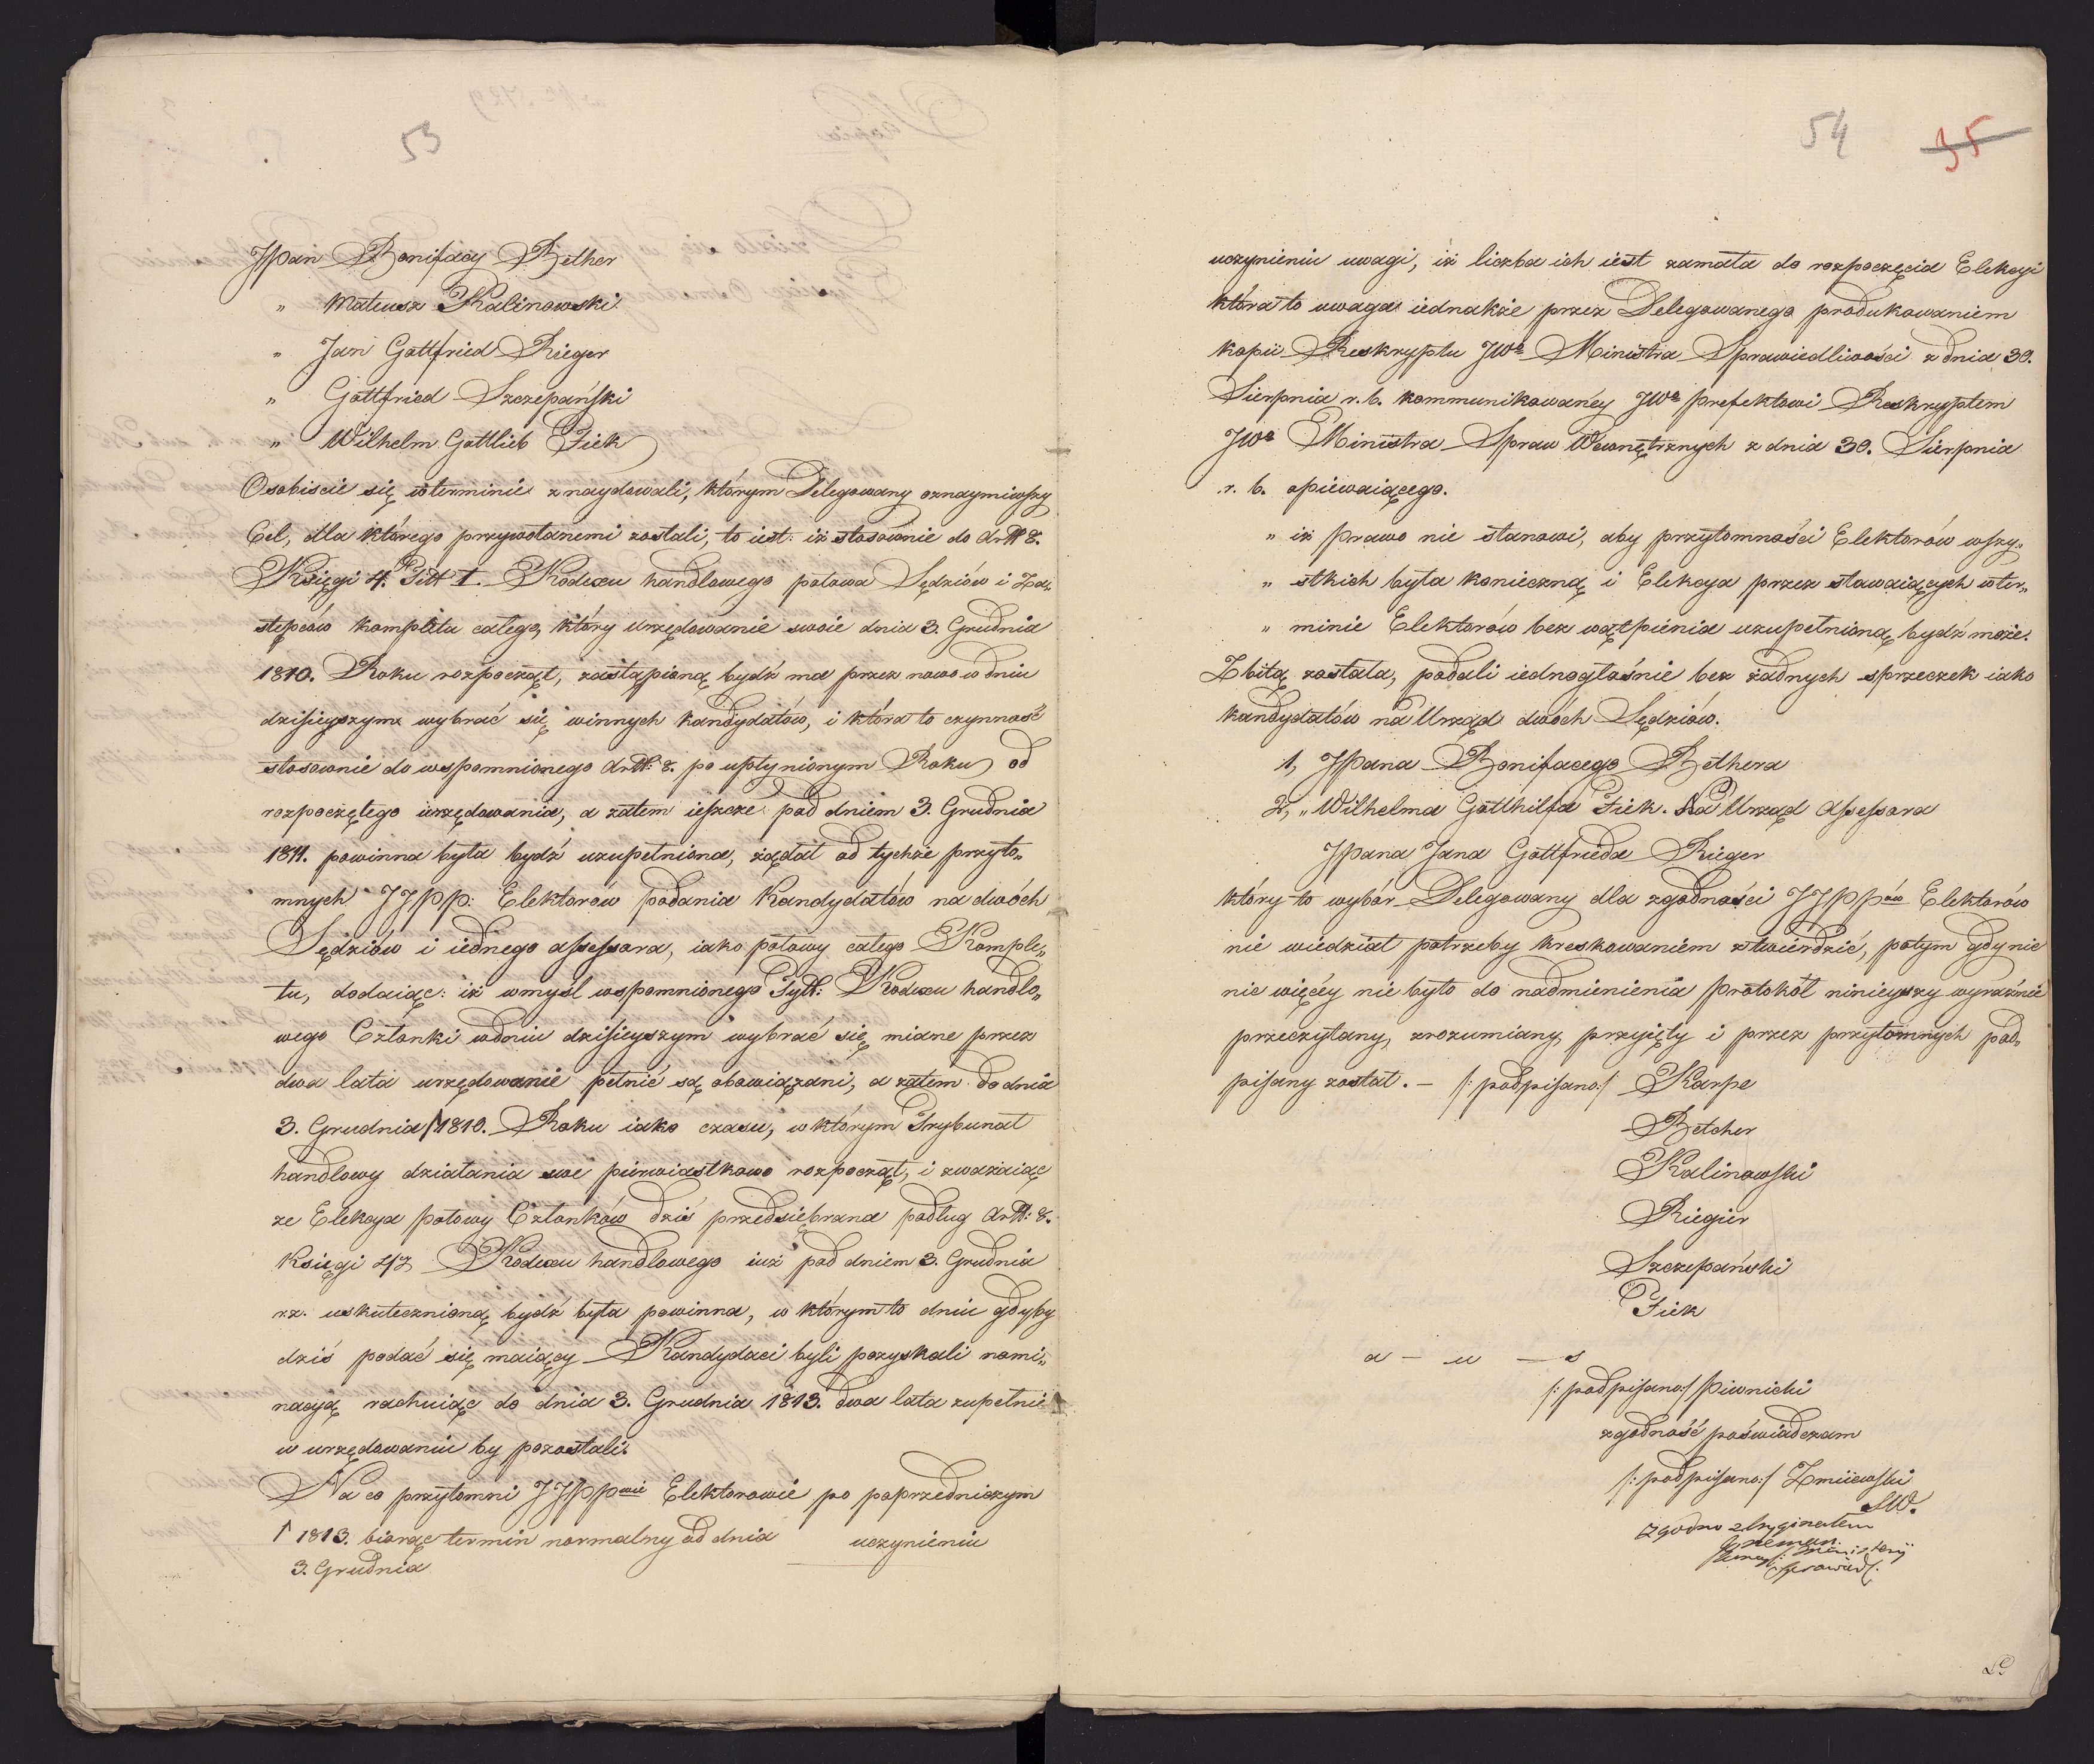 53
JPan Bonifacy Bether
" Mateusz Kalinowski
" Jan Gottfried Rieger
" Gottfried Szczepański
" Wilhelm Gottlieb Fiek
Osobiscie się w terminie znaydowali, którym Delegowany oznaymiwszy
Cel, dla którego przywołanemi zostali, to iest: iż stosownie do Artt 8.
Księgi 4. Titt 1. Kodexu handlowego połowa Sędziów i Za„
stępców kompletu całego, który urzędowanie swoie dnia 3. Grudnia
1810. Roku rozpoczął, zastąpioną bydź ma przez nowo w dniu
dzisieyszym wybrać się winnych kandydatów, i która to czynność
stosownie do wspomnionego Artt: 8. po upłynionym Roku od
rozpoczętego urzędowania, a zatem ieszcze pod dniem 3. Grudnia
1811. powinna była bydź uzupełniona, żądał od tychże przyto„
mnych JJPP: Elektorów podania Kandydatów na dwóch
Sędziów i iednego Assessora, iako połowy całego Komple„
tu, dodaiąc: iż w myśl wspomnionego Tytł: Kodexu handlo„
wego Członki w dniu dzisieyszym wybrać się miane przez
dwa lata urzędowanie pełnić są obowiązani, a zatem do dnia
3. Grudnia ↑ 1810. Roku iako czasu, w którym Trybunał
handlowy działania swe pierwiastkowo rozpoczął, i zważaiąc
że Elekcya połowy Członków dziś przedsiębrana podług Artt: 8.
Księgi 4tz Kodexu handlowego iuż pod dniem 3. Grudnia
r.z. uskutecznioną bydź była powinna, w którym to dniu gdyby
dziś podać się maiący Kandydaci byli pozyskali nomi„
nacyą rachuiąc do dnia 3. Grudnia 1813. dwa lata zupełnie
w urzędowaniu by pozostali.
Na co przytomni JJPPowie Elektorowie po poprzedniczym
↑ 1813. biorąc termin normalny od dnia
3. Grudnia
uczynieniu
54 35
uczynieniu uwagi, iż liczba ich iest zamała do rozpoczęcia Elekcyi
która to uwaga iednakże przez Delegowanego produkowaniem
kopii Reskryptu JWo Ministra Sprawiedliwości z dnia 30.
Sierpnia r.b. kommunikowaney JWo Prefektowi Reskryptem
JWo Ministra Spraw Wewnętrznych z dnia 30. Sierpnia
r. b. opiewaiącego.
" iż prawo nie stanowi, aby przytomności Elektorów wszy„
" stkich była konieczną i Elekcya przez stawaiących w ter„
" minie Elektorów bez wątpienia uzupełnioną bydź może.
Zbitą została, podali iednogłośnie bez żadnych sprzeczek iako
kandydatów na Urząd dwóch Sędziów.
1, JPana Bonifacego Bethera
2, " Wilhelma Gotthilfa Fiek. Na Urząd Assessora
JPana Jana Gottfrieda Rieger
który to wybór Delegowany dla zgodności JJPPów Elektorów
nie wiedział potrzeby kreskowaniem ztwierdzić, potym gdy nic
nic więcéy nie było do nadmienienia Protokół ninieyszy wyraźnie
przeczytany, zrozumiany, przyięty i przez przytomnych pod„
pisany został. — /: podpisano:/ Karpe
Betcher
Kalinowski
Riegier
Szczepański
Fiek
a — u — s
/: podpisano:/ Piwnicki
zgodność poświadczam
/: podpisano:/ Zmiiewski
SW.
Zgodno z Oryginałem